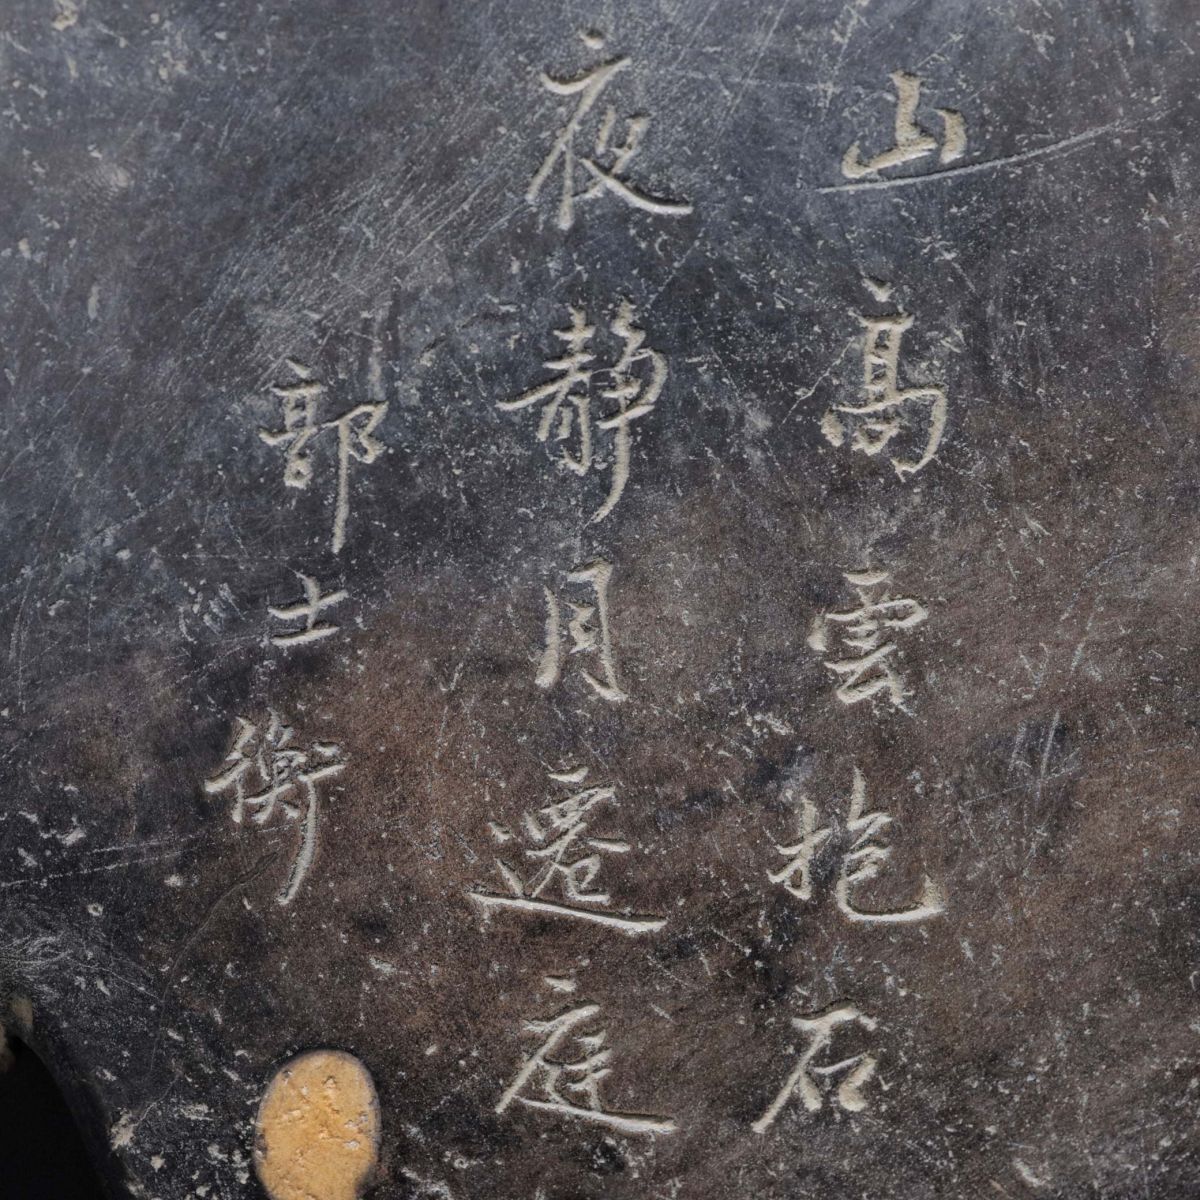 山高雲抱石
夜靜月遷庭
郭士衡